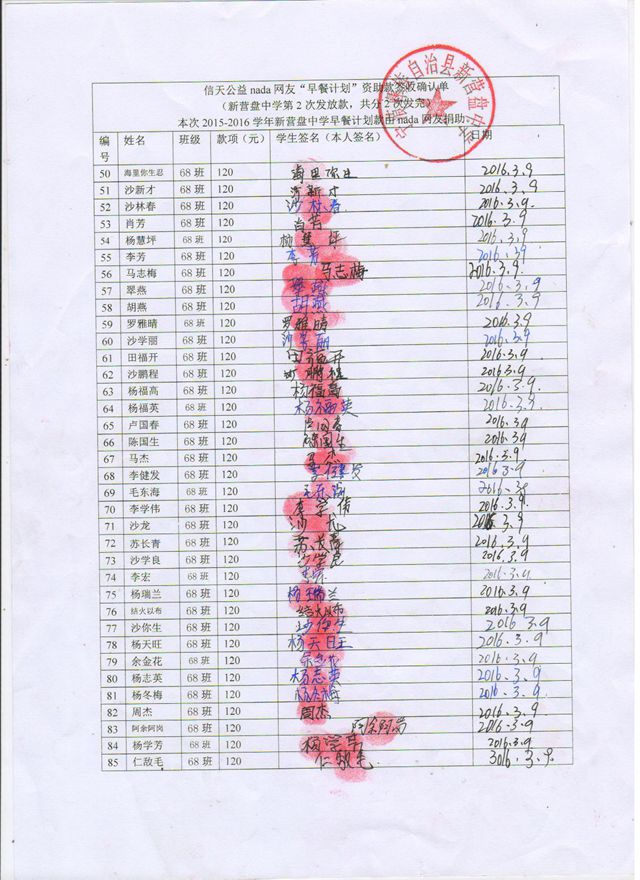 信天公益nada网友“早餐计划”资助款签收确认单
(新营盘中学第2次发放款,共分2次发完)
本次2015-2016学年新营盘中学早餐计划款由nada网友捐助
自治县新营盘中学
编号 姓名 班级 款项(元) 学生签名(本人签名) 日期
50 海里你生忍 68班 120 2016.3.9
51 沙新才 68班 120 沙新才 2016.3.9
52 沙林春 68班 120 沙林春 2016.3.9
53 肖芳 68班 120 肖芳 2016.3.9
54 杨慧坪 68班 120 杨慧坪 2016.3.9
55 李芳 68班 120 李芳 2016.3.9
56 马志梅 68班 120 马志梅 2016.3.9
57 翠燕 68班 120 翠燕 2016.3.9
58 胡燕 68班 120 胡燕 2016.3.9
59 罗雅晴 68班 120 罗雅晴 2016.3.9
60 沙学丽 68班 120 沙学丽 2016.3.9
61 田福开 68班 120 田福开 2016.3.9
62 沙鹏程 68班 120 沙鹏程 2016.3.9
63 杨福高 68班 120 杨福高 2016.3.9
64 杨福英 68班 120 杨福英 2016.3.9
65 卢国春 68班 120 卢国春 2016.3.9
66 陈国生 68班 120 陈国生 2016.3.9
67 马杰 68班 120 马杰 2016.3.9
68 李健发 68班 120 李健发 2016.3.9
69 毛东海 68班 120 毛东海 2016.3.9
70 李学伟 68班 120 李学伟 2016.3.9
71 沙龙 68班 120 沙龙 2016.3.9
72 苏长青 68班 120 苏长青 2016.3.9
73 沙学良 68班 120 沙学良 2016.3.9
74 李宏 68班 120 李宏 2016.3.9
75 杨瑞兰 68班 120 杨瑞兰 2016.3.9
76 结火以布 68班 120 结火以布 2016.3.9
77 沙你生 68班 120 沙你生 2016.3.9
78 杨天旺 68班 120 杨天旺 2016.3.9
79 余金花 68班 120 余金花 2016.3.9
80 杨志英 68班 120 杨志英 2016.3.9
81 杨冬梅 68班 120 杨冬梅 2016.3.9
82 周杰 68班 120 周杰 2016.3.9
83 阿余阿岗 68班 120 阿余阿岗 2016.3.9
84 杨学芳 68班 120 杨学芳 2016.3.9
85 仁敌毛 68班 120 仁敌毛 3016.3.9